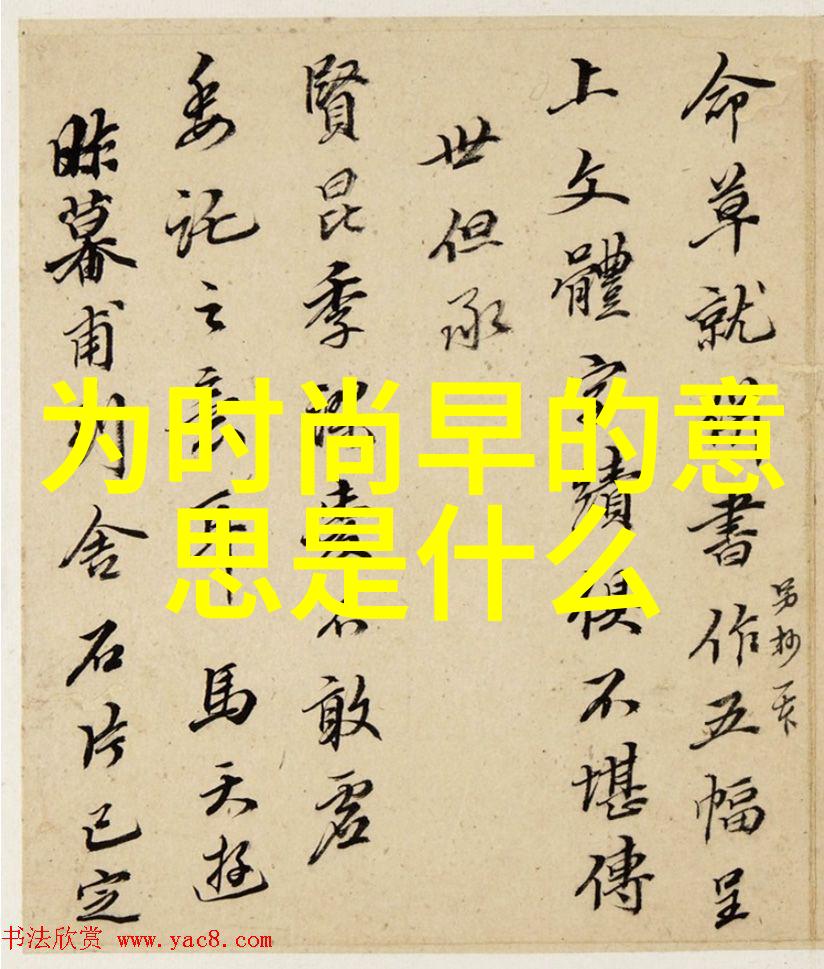 命草就書作五幅呈
另抄
上文體字蹟俱不堪傳
世但承
賢昆季不敢虛
委託之意耳馬天遊
昨甫到舍石片已定
为时尚早的意
思是什么
书法欣赏 www.yac8.com